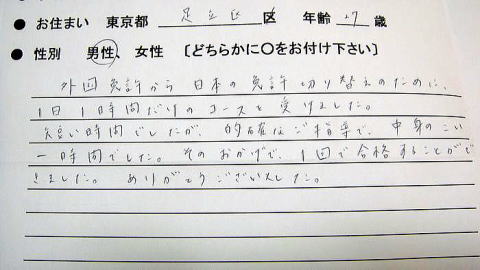 ● お住まい 東京都 足立区 区 年齢 27 歳
● 性別 男性、女性 〔どちらかに〇をお付け下さい〕
外国免許から日本の免許切り替えのために、
1日1時間だけのコースを受けました。
短い時間でしたが、的確なご指導で、中身のこい
一時間でした。そのおかげで、1回で合格することがで
きました。ありがとうございました。